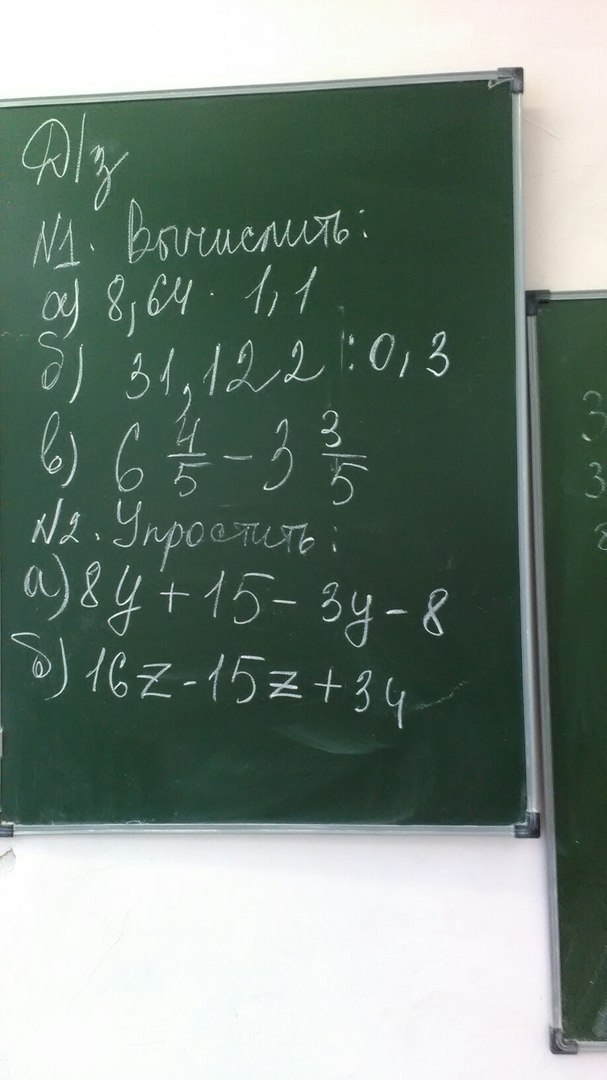 Д/з
№1. Вычислить:
а) 8,64 · 1,1
б) 31,122 : 0,3
в) 6 4/5 - 3 3/5
№2. Упростить:
а) 8y + 15 - 3y - 8
б) 16z - 15z + 34
3
3
8